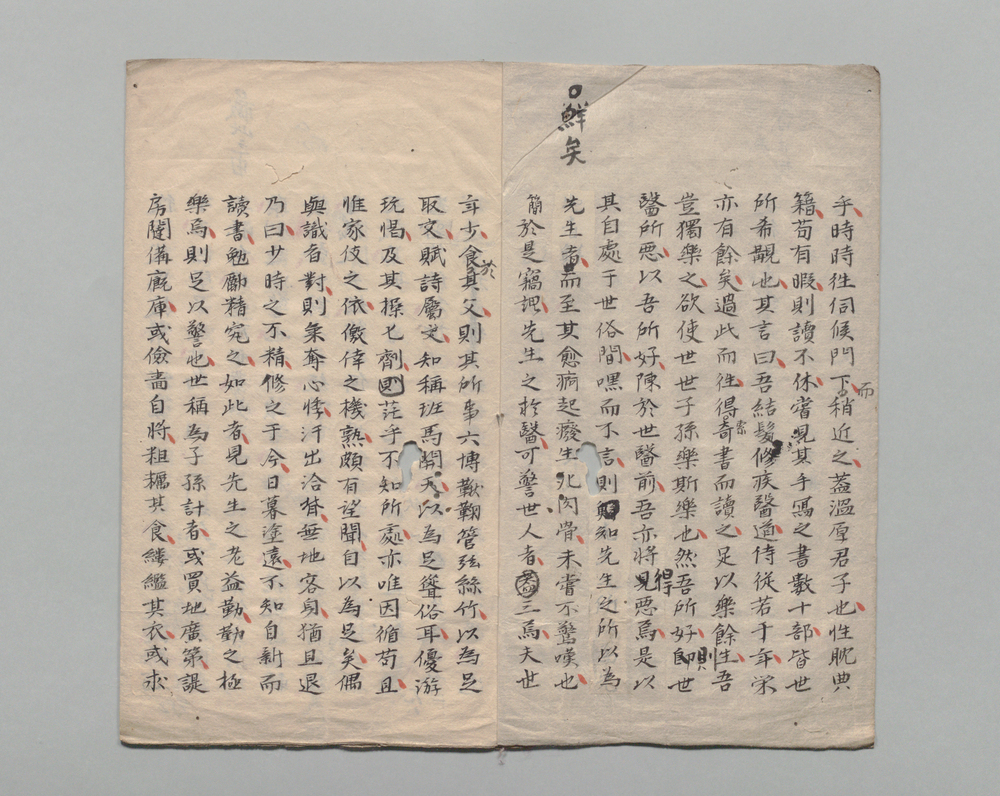 鮮矣
乎時時徃伺候門下稍近之蓋溫厚君子也性耽典
而
籍苟有暇則讀不休嘗見其手寫之書數十部皆世
所希覯也其言曰吾結髮修疾醫道侍從若干年栄
亦有餘矣過此而徃得奇書而讀之足以樂餘生吾
索
豈獨樂之欲使世世子孫樂斯樂也然吾所好即世
則
醫所悪以吾所好陳於世醫前吾亦將見悪焉是以
得
其自處于世俗間嘿而不言則知先生之所以為
先生者而至其愈痾起癈生化肉骨未嘗不驚嘆也
簡於是竊謂先生之於醫可警世人者三焉夫世
年少食其父則其所事六博歡鞠管弦絲竹以為足
於
取文賦詩屬文知稱班馬開天以為足聳俗耳優游
玩愒及其操七劑託乎不知所處亦唯因循苟且
惟家伎之依儌倖之機熟頗有望聞自以為足矣偶
與識者對則氣奪心悸汗出洽背無地容身猶且退
乃曰少時之不精修之于今日暮塗遠不知自新而
讀書勉勵精究之如此者見先生之老益勤勤之極
樂焉則足以警也世稱為子孫計者或買地廣第諟
房闥備廐庫或儉嗇自將粗糲其食縷繿其衣或求